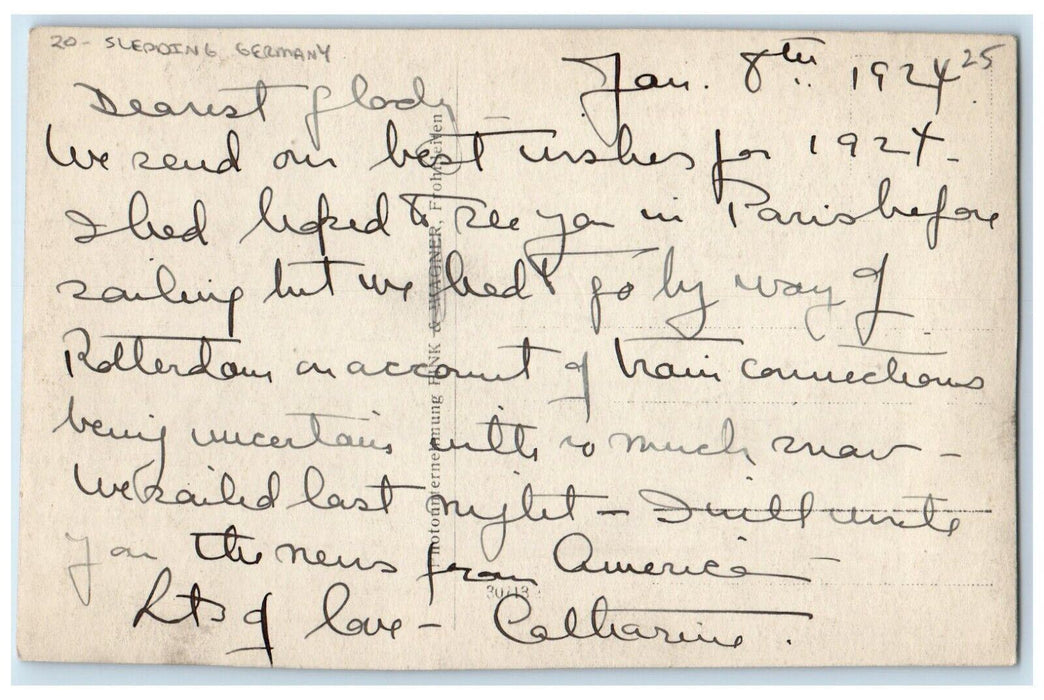 20- SLEDDING, GERMANY
25
Jan. 8th. 1924.
Dearest Glady -
We send our best wishes for 1924 -
I had hoped to see you in Paris before
sailing but we had to go by way of
Rotterdam on account of train connections
being uncertain with so much snow -
We sailed last night - I will write
you the news from America -
Lots of love - Catharine.
Photounternehmung FINK & WAGNER, Frohnleiten
30/13